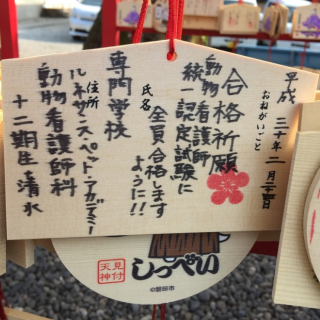 平成三十年二月二十四日
おねがいごと
合格祈願
動物看護師
統一認定試験に
全員合格します
ように!!
氏名
専門学校
住所
ルネサンス・ペット・アカデミー
動物看護師科
十二期生 清水
見付
天神
しっぺい
©磐田市